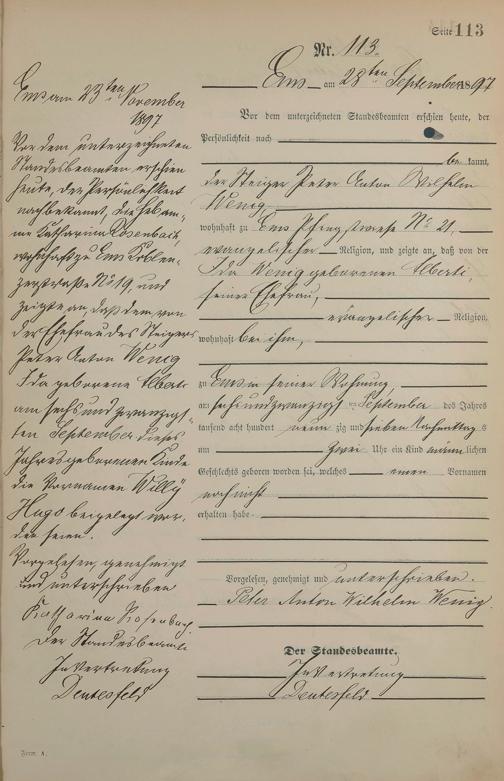 Seite 113
Nr. 113.
Ems am 28ten September 1897
Vor dem unterzeichneten Standesbeamten erschien heute, der
Persönlichkeit nach
bekannt,
der Steiger Peter Anton Wilhelm
Wenig
wohnhaft zu Ems Pfingstwiese No 21,
evangelischer Religion, und zeigte an, daß von der
Ida Wenig geborenen Alberti,
seiner Ehefrau,
evangelischer Religion,
wohnhaft bei ihm,
zu Ems in seiner Wohnung,
am sechsundzwanzigsten September des Jahres
tausend acht hundert neunzig und sieben Nachmittags
um zwei Uhr ein Kind männlichen
Geschlechts geboren worden sei, welches einen Vornamen
noch nicht
erhalten habe
Vorgelesen, genehmigt und unterschrieben.
Peter Anton Wilhelm Wenig
Der Standesbeamte.
In Vertretung
Deutesfeld
Ems am 23ten November
1897
Vor dem unterzeichneten
Standesbeamten erschien
heute, der Persönlichkeit
nach bekannt, die Hebam-
me Katharina Rosenbach,
wohnhaft zu Ems Koblen-
zerstraße No 19, und
zeigte an, daß dem, von
der Ehefrau des Steigers
Peter Anton Wenig
Ida geborene Alberti
am sechs und zwanzigs-
ten September dieses
Jahres geborenen Kinde
die Vornamen Willy
Hugo beigelegt wor-
den seien.
Vorgelesen, genehmigt
und unterschrieben
Katharina Rosenbach
Der Standesbeamte
In Vertretung
Deutesfeld
Form. A.